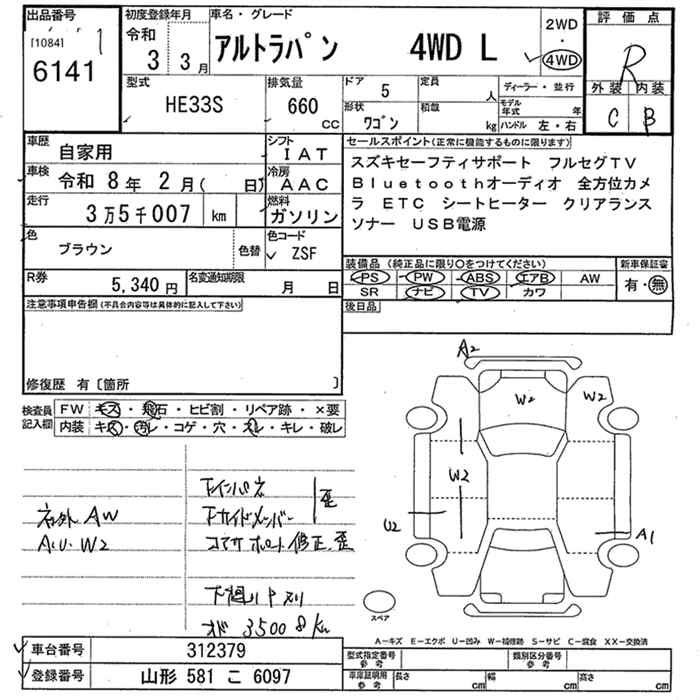 出品番号
[1084] 1
6141
初度登録年月
令和
3 3月
車名・グレード
アルトラパン 4WD L
2WD
4WD
評価点
R
外装 内装
C B
型式
HE33S
排気量
660 cc
ドア
5
定員
人
形状
ワゴン
積載
kg
ディーラー・並行
モデル年式 年
ハンドル 左・右
車歴
自家用
シフト
IAT
車検
令和 8年 2月( 日)
冷房
AAC
走行
3万5千007 km
燃料
ガソリン
色
ブラウン
色替
色コード
ZSF
R券
5,340 円
名変通知期限
月 日
セールスポイント(正常に機能するものに限ります)
スズキセーフティサポート フルセグTV
Bluetoothオーディオ 全方位カメ
ラ ETC シートヒーター クリアランス
ソナー USB電源
装備品(純正品に限り○をつけてください)
PS PW ABS エアB AW
SR ナビ TV カワ
新車保証書
有・無
後日品
注意事項申告欄(不具合内容等は具体的に記入して下さい)
修復歴 有〔箇所 〕
検査員
記入欄
FW キズ・飛石・ヒビ割・リペア跡・×要
内装 キズ・汚レ・コゲ・穴・スレ・キレ・破レ
社外AW
A.U.W2
下インパネ
下サイドメンバー 歪
コアサポート修正、歪
下廻り
35008km
A2
W2
W2
W2
U2
A1
スペア
A-キズ E-エクボ U-凹み W-補修跡 S-サビ C-腐食 XX-交換済
車台番号
312379
登録番号
山形 581 こ 6097
型式指定番号
参考
類別区分番号
参考
車庫証明用
参考
長さ cm 幅 cm 高さ cm